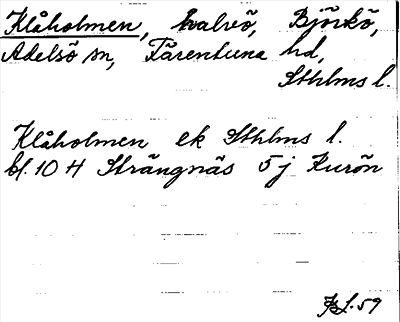 Klåholmen, halvö, Björkö,
Adelsö sn, Färentuna hd,
Sthlms l.
Klåholmen ek Sthlms l.
bl. 10 H Strängnäs 5 j Kurön
59